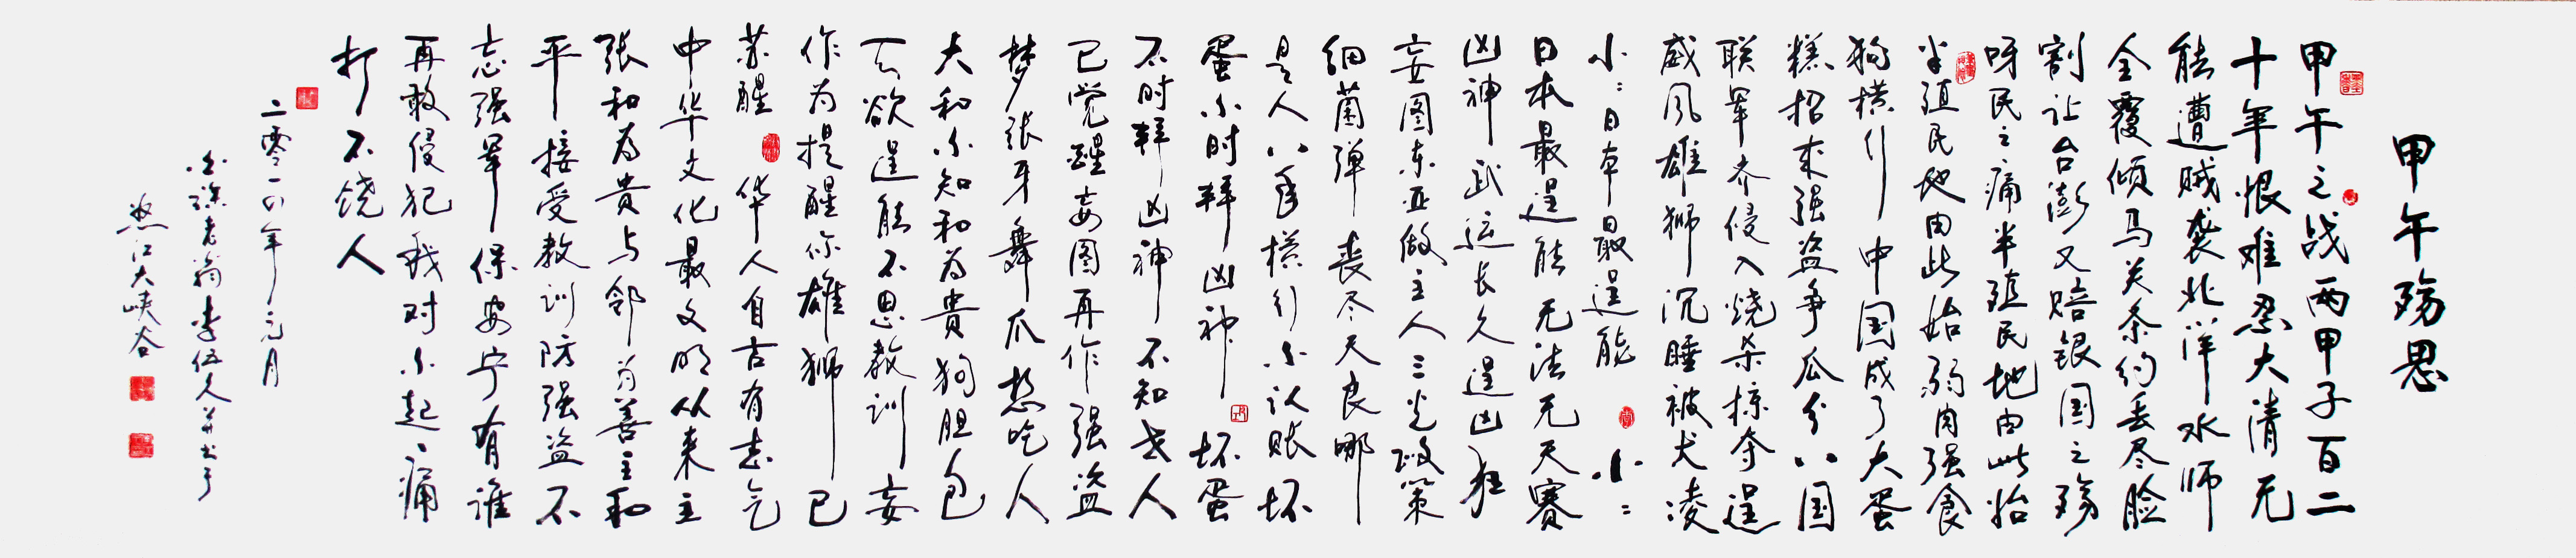 甲午殇思
甲午之战两甲子百二
十年恨难忍大清无
能遭贼袭北洋水师
全覆倾马关条约丢尽脸
割让台澎又赔银国之殇
呀民之痛半殖民地由此始
半殖民地由此始弱肉强食
狗横行中国成了大蛋
糕招来强盗争瓜分八国
联军齐侵入烧杀掠夺逞
威风雄狮沉睡被犬凌
小:日本最逞能 小:
日本最逞能无法无天赛
凶神武运长久逞凶狂
妄图东亚做主人三光政策
细菌弹丧尽天良哪
是人八年横行不认账坏
蛋不时拜凶神 坏蛋
不时拜凶神不知老人
已觉醒妄图再作强盗
梦张牙舞爪想吃人
大和不知和为贵狗胆包
天欲逞能不思教训妄
作为提醒你雄狮已
苏醒 华人自古有志气
中华文化最文明从来主
张和为贵与邻为善主和
平接受教训防强盗不
忘强军保安宁有谁
再敢侵犯我对不起、痛
打不饶人
二零一四年元月
老翁李伍久并书于
怒江大峡谷